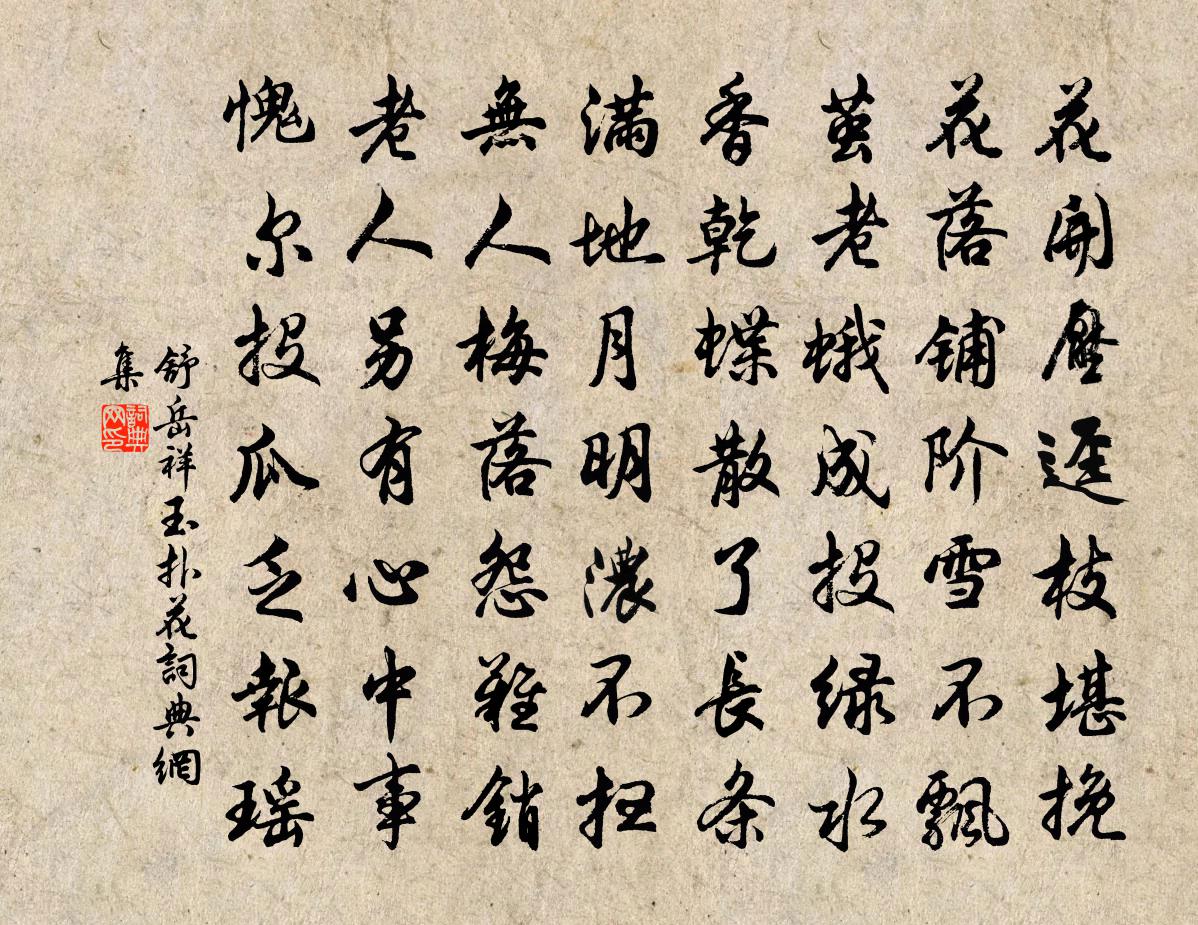 花開壓逕枝堪挽
花落鋪阶雪不飄
茧老蛾成投緑水
香乾蝶散了長条
滿地月明濃不扫
無人梅落怨難銷
老人另有心中事
愧尔投瓜乏報瑶
舒岳祥玉扑花詞典網
集
詞典网印